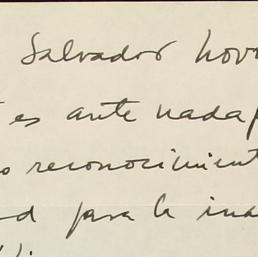 Salvador Nov
es ante nada
reconocimient
para la ina